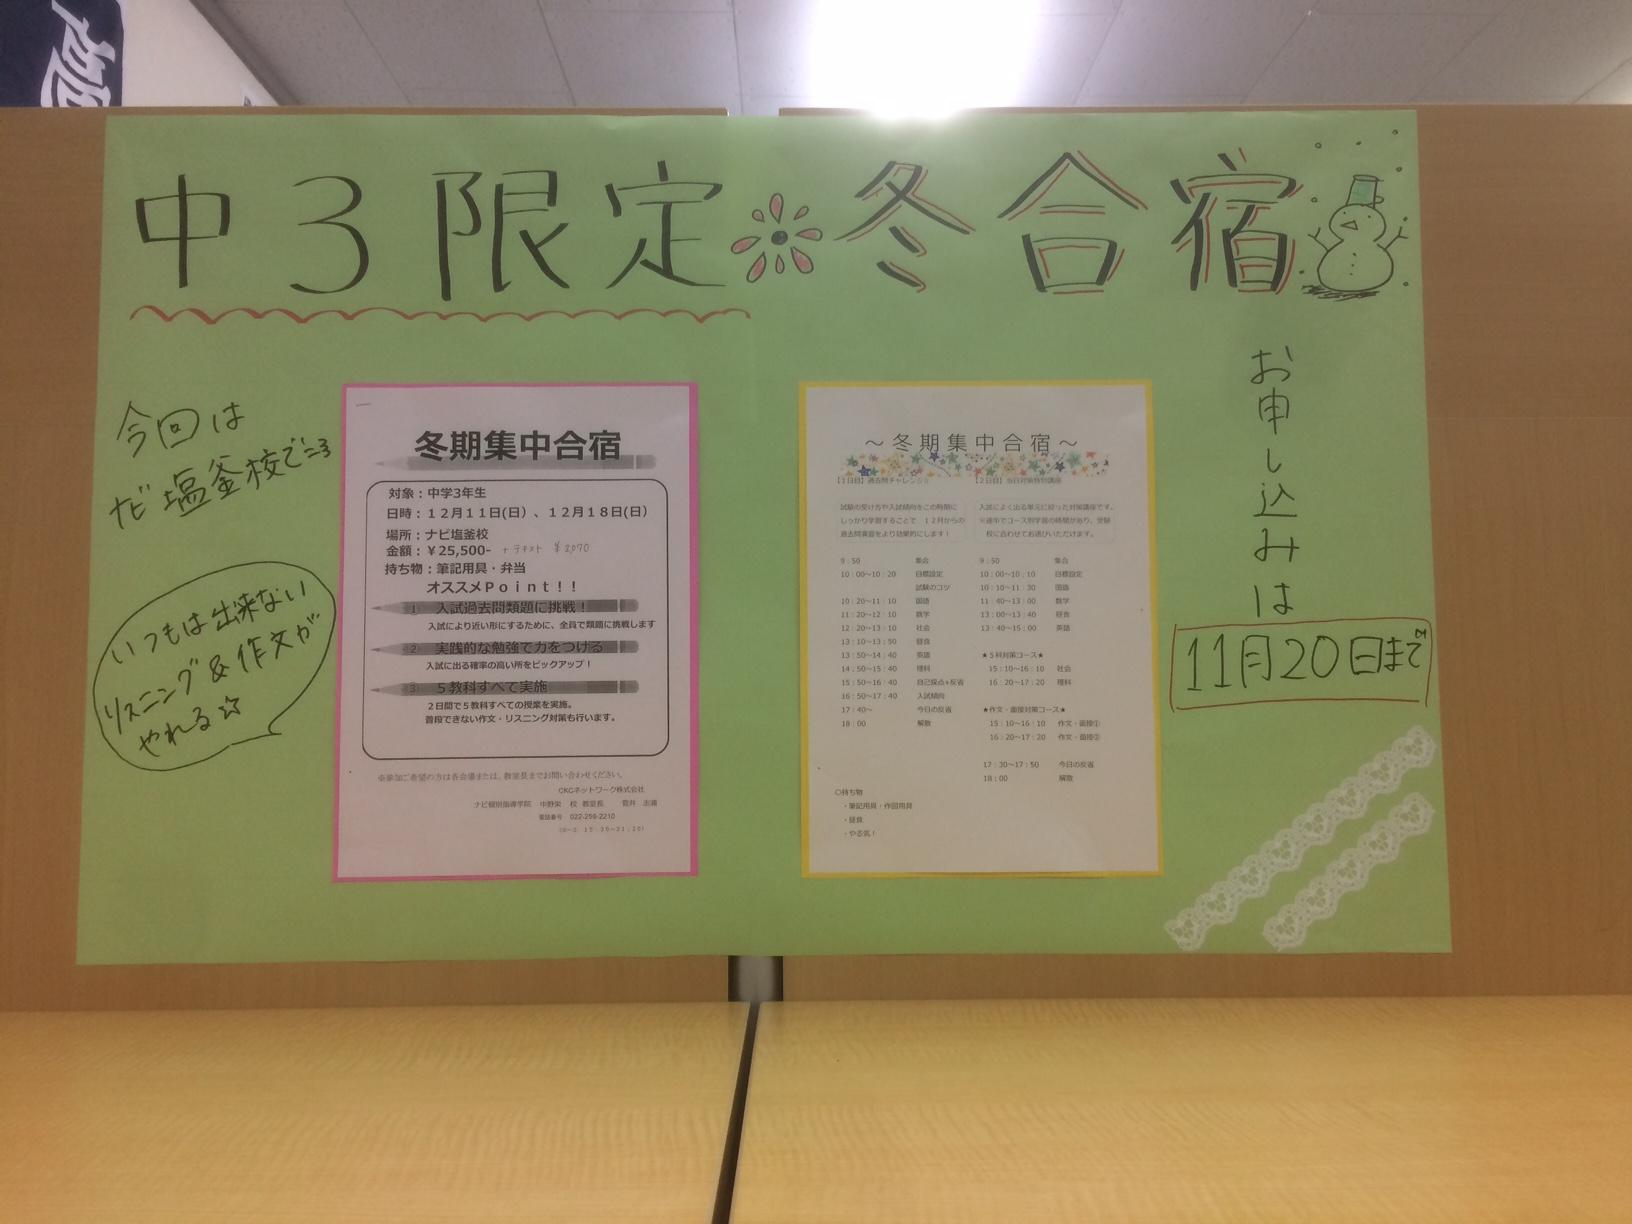 中3限定 冬合宿
今回は
ナビ塩釜校でいこう
いつもは出来ない
リスニング&作文が
やれる☆
冬期集中合宿
対象：中学3年生
日時：１２月１１日(日）、１２月１８日(日）
場所：ナビ塩釜校
金額：￥25,500- +テキスト ￥2,070
持ち物：筆記用具・弁当
オススメＰｏｉｎｔ！！
① 入試過去問類題に挑戦！
入試により近い形にするために、全員で類題に挑戦します
② 実践的な勉強で力をつける
入試に出る確率の高い所をピックアップ！
③ ５教科すべて実施
２日間で５教科すべての授業を実施。
普段できない作文・リスニング対策も行います。
※参加ご希望の方は各会場または、教室長までお問い合わせください。
CKCネットワーク株式会社
ナビ個別指導学院 中野栄 校 教室長 菅井 志浦
電話番号 022-259-2210
～冬期集中合宿～
【１日目】過去問チャレンジ☆
試験の受け方や入試傾向をこの時期に
しっかり学習することで、１２月からの
過去問演習をより効果的にします！
9：50 集合
10：00～10：20 目標設定
試験のコツ
10：20～11：10 国語
11：20～12：10 数学
12：20～13：10 社会
13：10～13：50 昼食
13：50～14：40 英語
14：50～15：40 理科
15：50～16：40 自己採点+反省
16：50～17：40 入試傾向
17：40～ 今日の反省
18：00 解散
○持ち物
・筆記用具・作図用具
・昼食
・やる気！
【２日目】当日対策特別講座
入試によく出る単元に絞った対策講座です。
※途中でコース別学習の時間があり、受験
校に合わせてお選びいただけます。
9：50 集合
10：00～10：10 目標設定
10：10～11：30 国語
11：40～13：00 数学
13：00～13：40 昼食
13：40～15：00 英語
★５科対策コース★
15：10～16：10 社会
16：20～17：20 理科
★作文・面接対策コース★
15：10～16：10 作文・面接①
16：20～17：20 作文・面接②
17：30～17：50 今日の反省
18：00 解散
お申し込みは
11月20日まで